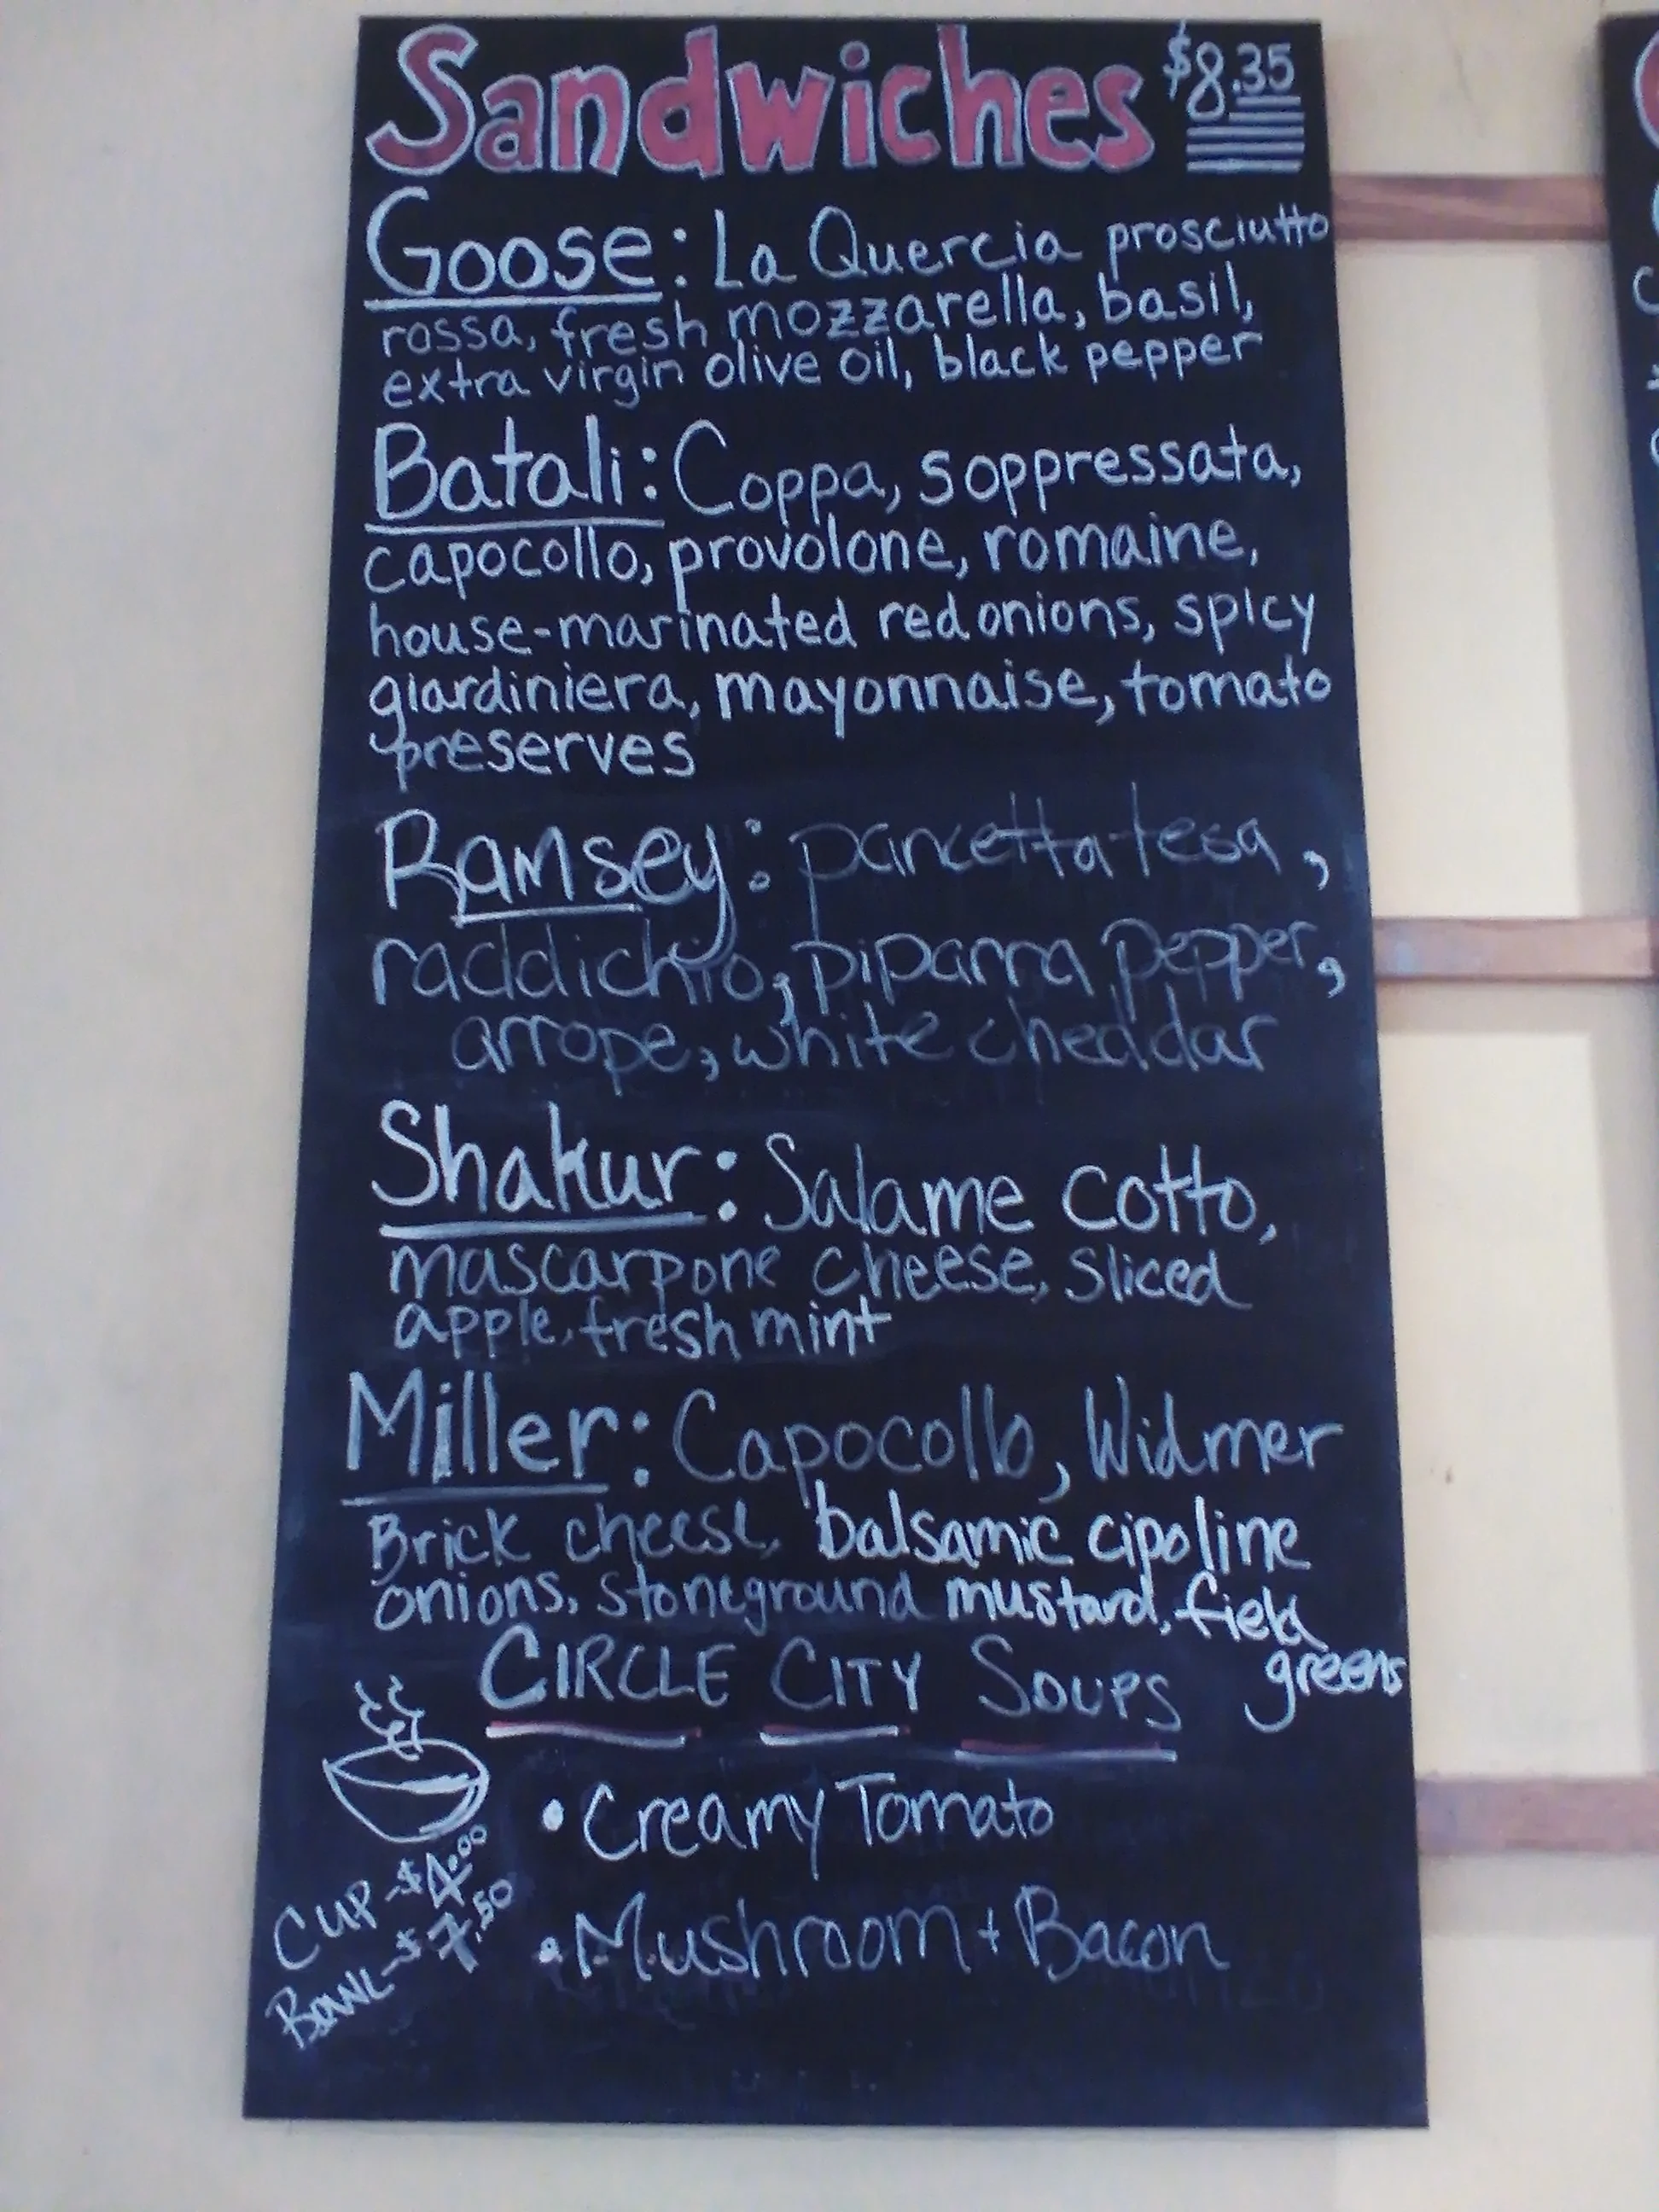 Sandwiches $8.35
Goose: La Quercia prosciutto
rossa, fresh mozzarella, basil,
extra virgin olive oil, black pepper
Batali: Coppa, soppressata,
capocollo, provolone, romaine,
house-marinated red onions, spicy
giardiniera, mayonnaise, tomato
preserves
Ramsey: pancetta tesa,
raddichio, piparra pepper,
arrope, white cheddar
Shakur: Salame cotto,
mascarpone cheese, sliced
apple, fresh mint
Miller: Capocollo, Widmer
Brick cheese, balsamic cipoline
onions, stoneground mustard, field
greens
CIRCLE CITY SOUPS
• Creamy Tomato
• Mushroom + Bacon
CUP - $4.00
BOWL - $7.50